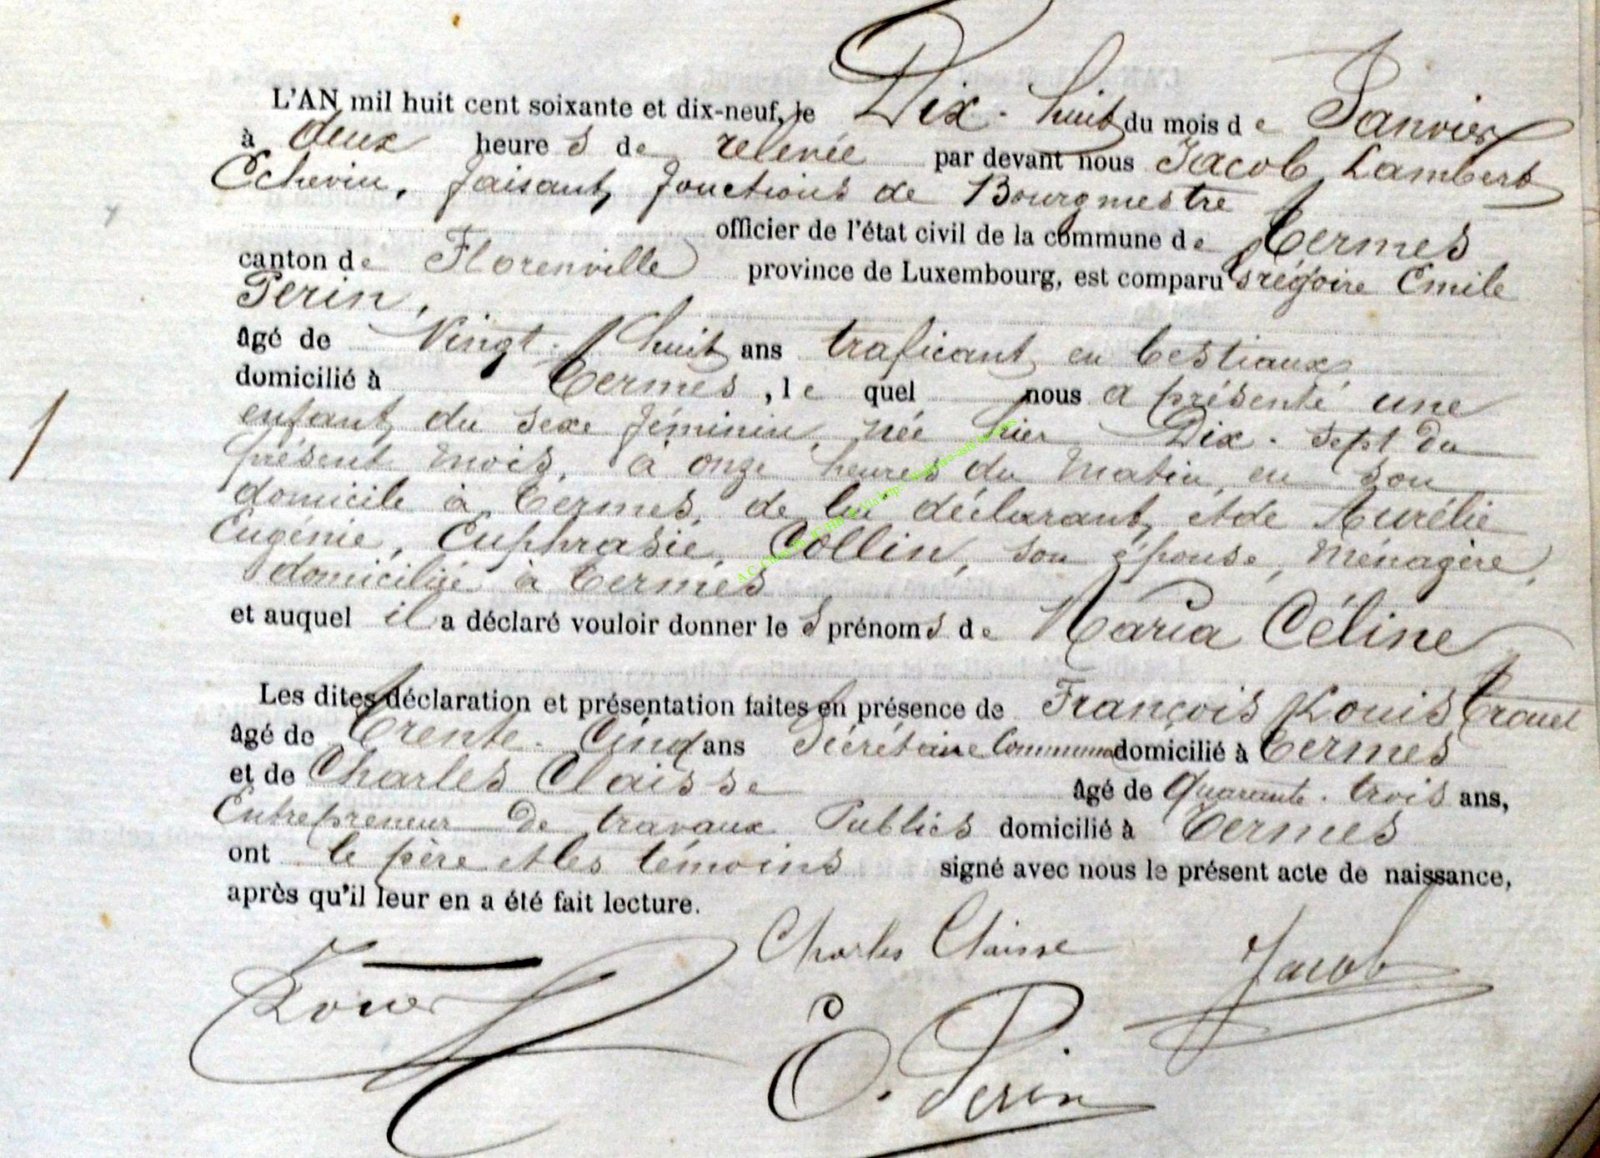 L'AN mil huit cent soixante et dix-neuf, le Dix-huit du mois de Janvier
à deux heures de relevée par devant nous Jacob Lambert
Echevin, faisant fonctions de Bourgmestre
officier de l'état civil de la commune de Termes
canton de Florenville province de Luxembourg, est comparu Grégoire Emile
Perin,
âgé de Vingt-huit ans traficant en bestiaux
domicilié à Termes, le quel nous a présenté une
enfant du sexe féminin, née hier Dix-sept du
présent mois, à onze heures du matin, en son
domicile à Termes, de lui déclarant, et de Aurélie
Eugénie, Euphrasie, Collin, son épouse, Ménagère,
domiciliée à Termes
et auquel il a déclaré vouloir donner les prénoms de Maria Céline
Les dites déclaration et présentation faites en présence de François Louis
âgé de Trente-Cinq ans Secrétaire Communal domicilié à Termes
et de Charles Claisse âgé de Quarante-trois ans,
Entrepreneur de travaux Publics domicilié à Termes
ont le père et les témoins signé avec nous le présent acte de naissance,
après qu'il leur en a été fait lecture.
Charles Claisse
Jacob
E. Perin